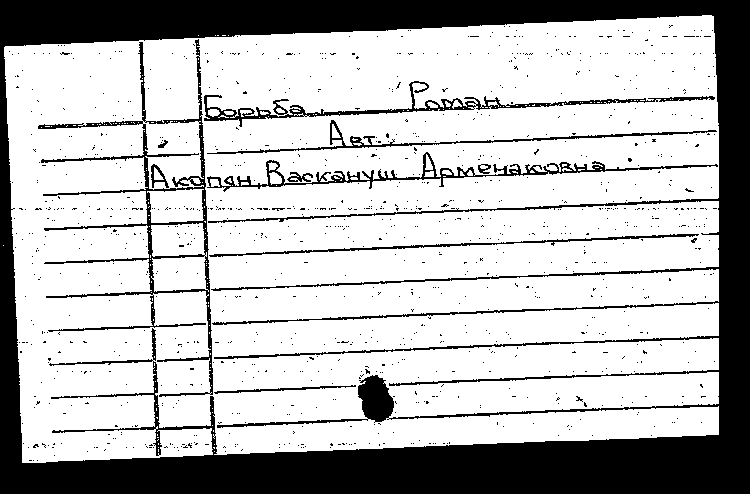 Борьба. Роман.
Авт.:
Акопян, Васкануш Арменаковна